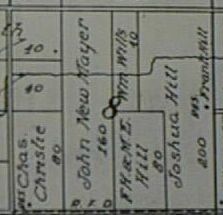 40
40
Chas.
Christie
80
John New Mayer
160
Wm Wills
40
F.H. & N.E.
Hill
80
Joshua Hill
200
Frank Hill
Res.